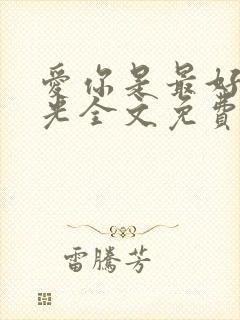 爱你是最好
光全文免費
雷騰芳